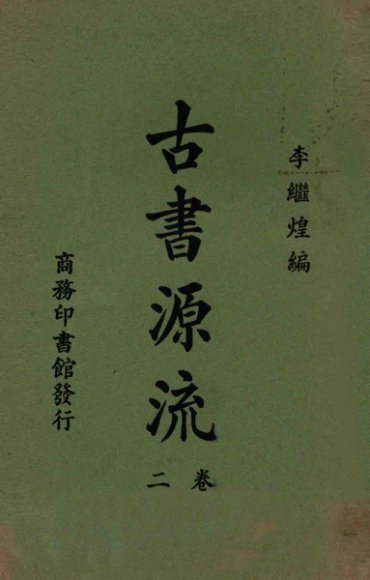 李繼煌編
古書源流
卷二
商務印書館發行